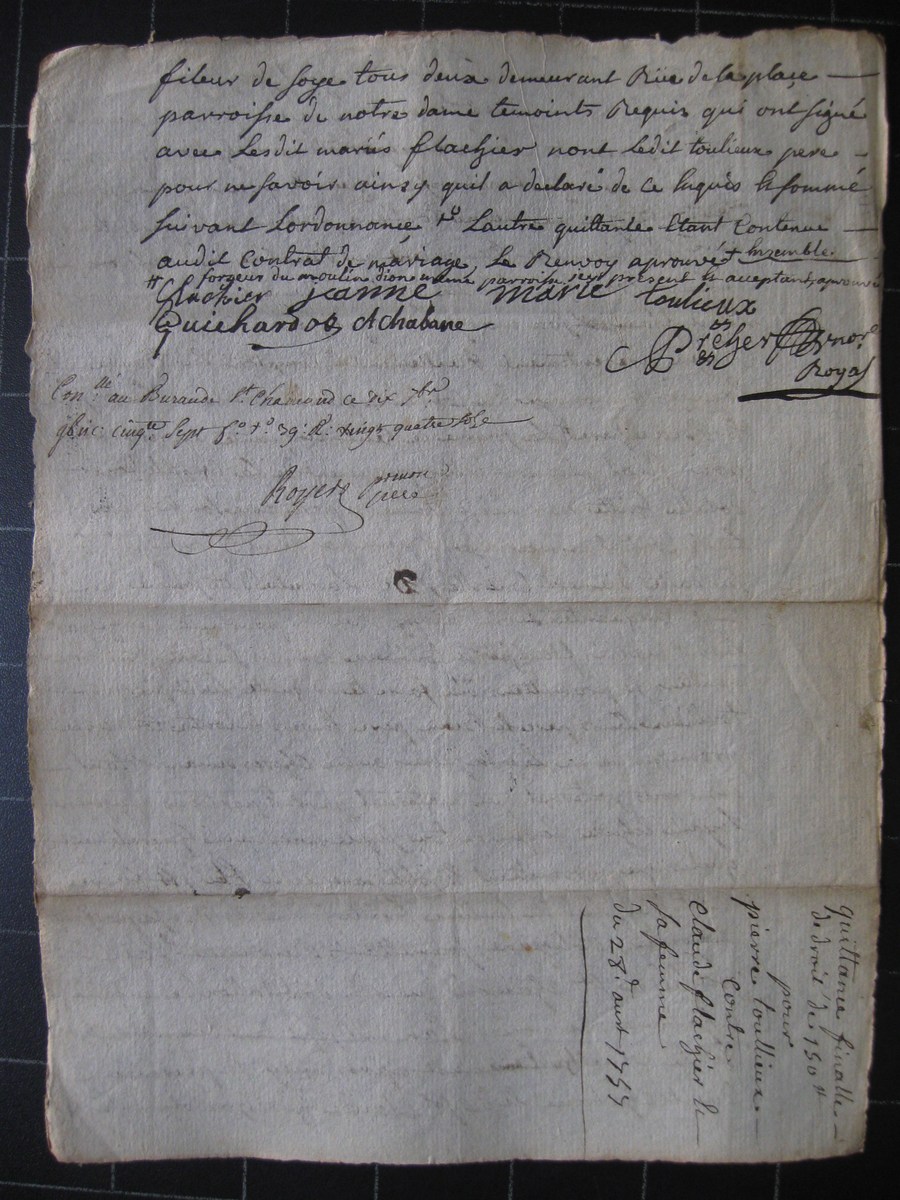 fileur de soye tous deux demeurant Rüe de la place
parroisse de notre dame temoints Requis qui ont signé
avec Lesdit mariés flachier nont Ledit toulieux pere
pour ne savoir ainsy quil a declaré de ce Enquis & sommé
suivant Lordonnance Lautre quittante Etant Contenue
audit Contrat de mariage, Le Renvoy aprouvé + Ensemble
forgeur du moulin dion meme parroisse jcy present & acceptant, aprouvé
flachier jeanne marie toulieux
Guichardoz A chabane
no.re
Royal
Con.llé au Bur au de St. Chamond ce dix 7br
cinq.te Sept fo. ro. 39. R. vingt quatre sols
Royer pr mon
pere
quittance finalle
de droit de 150 tt
pour
pierre toullieux
contre
claude flachier &
sa femme
du 28 d'aust 1757